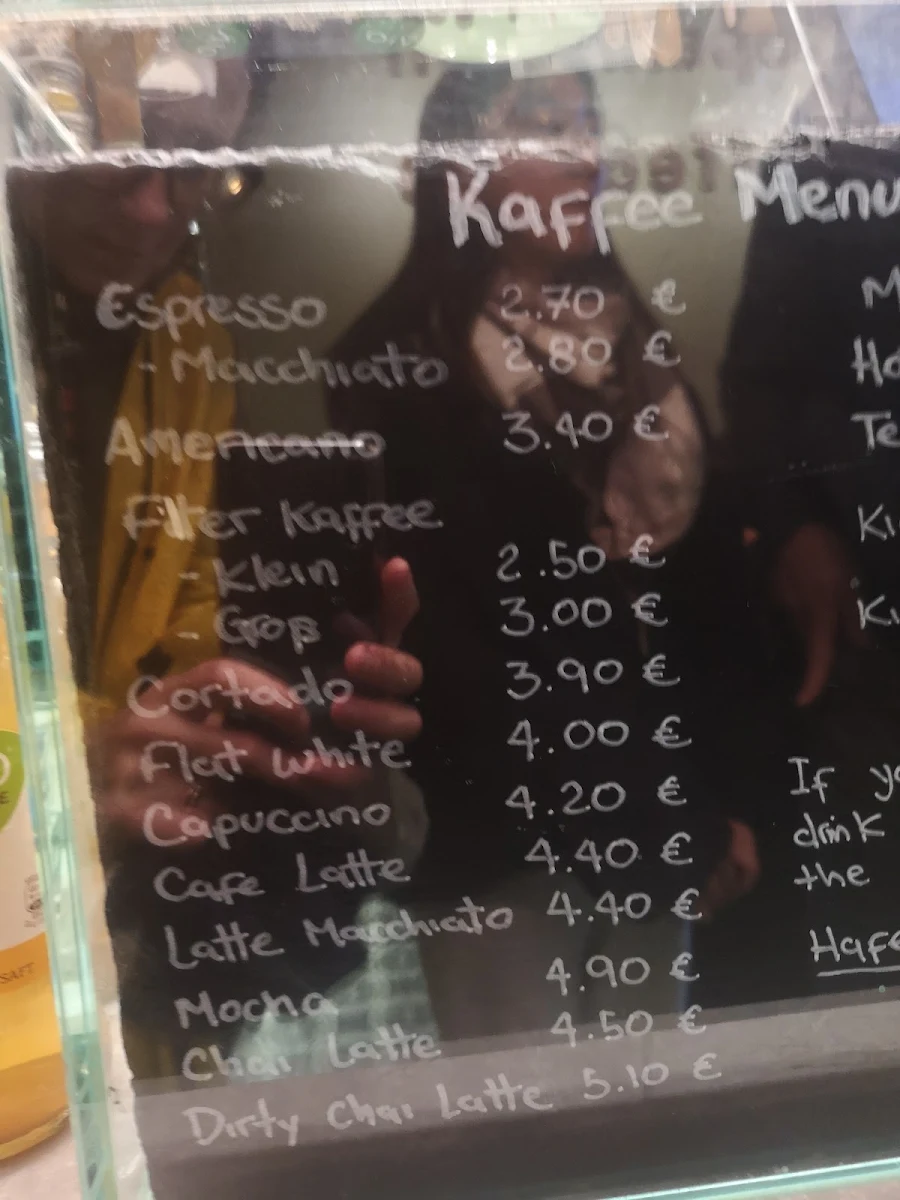 Kaffee Menu
Espresso 2.70 €
- Macchiato 2.80 €
Americano 3.40 €
Filter Kaffee
- Klein 2.50 €
- Groß 3.00 €
Cortado 3.90 €
Flat white 4.00 €
Capuccino 4.20 €
Cafe Latte 4.40 €
Latte Macchiato 4.40 €
Mocha 4.90 €
Chai Latte 4.50 €
Dirty Chai Latte 5.10 €
If
drink
the
SAFT